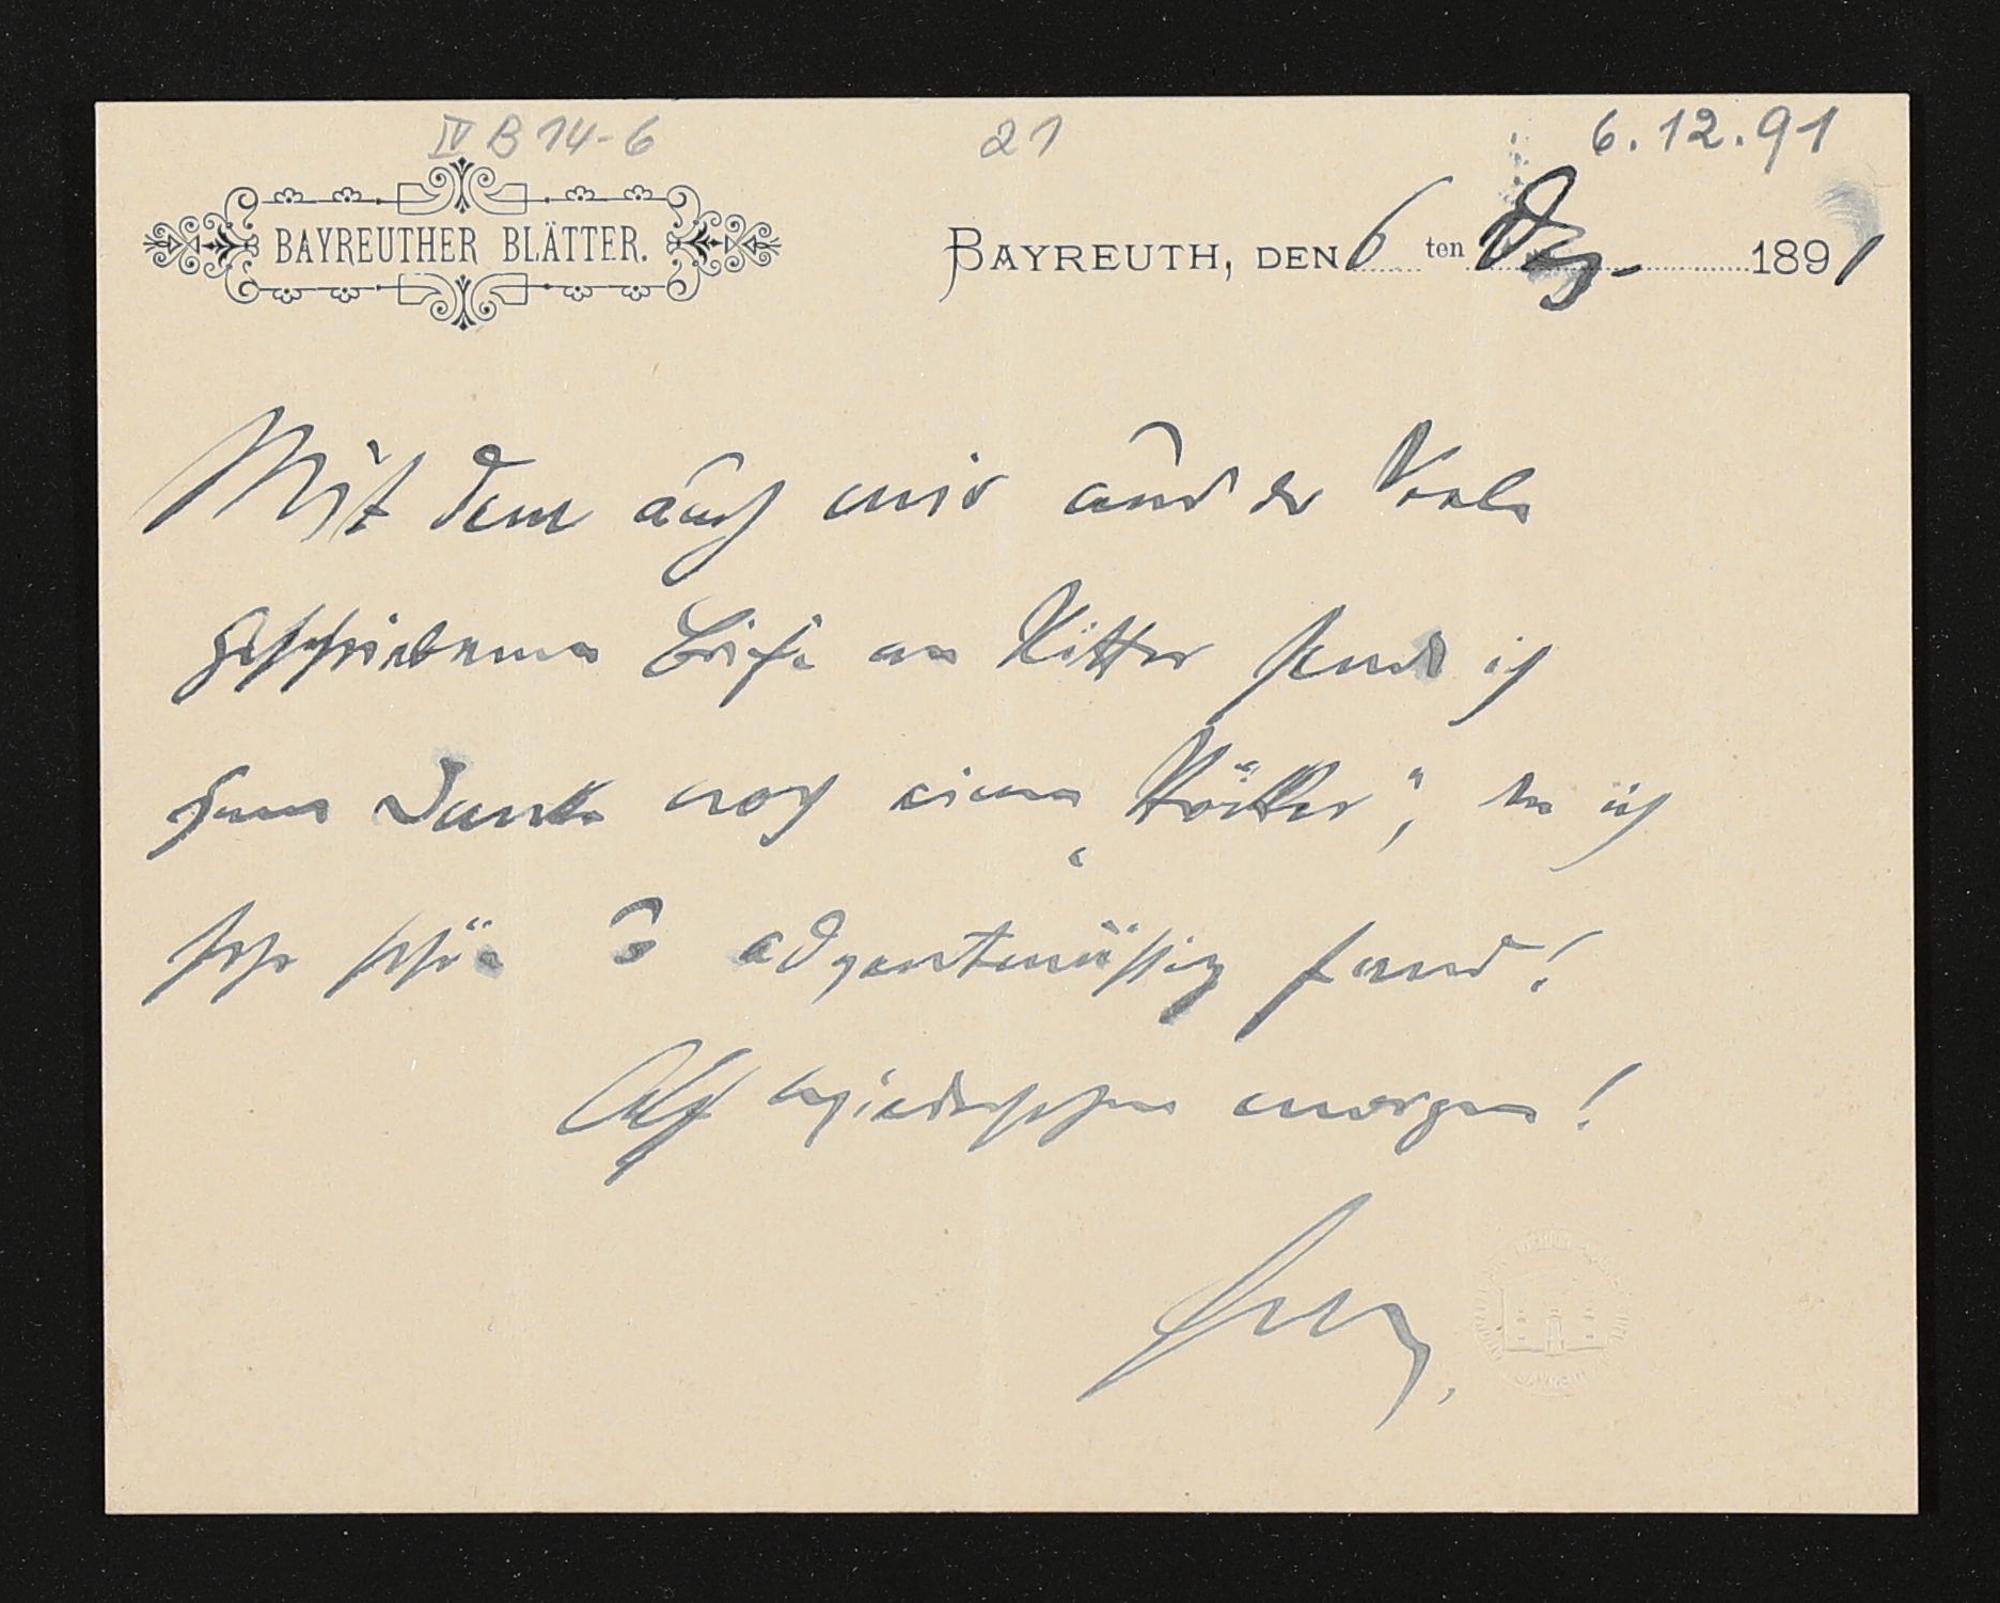 IV B 14-6 21 6.12.91
BAYREUTHER BLÄTTER.
BAYREUTH, DEN 6 ten Dez. 1891
Mit dem auch mir aus der
geschriebenen Briefe an Ritter sende ich
Ihnen Dank noch einen „ “, den ich
sehr schön u adventmäßig fand!
Auf wiedersehen morgen!